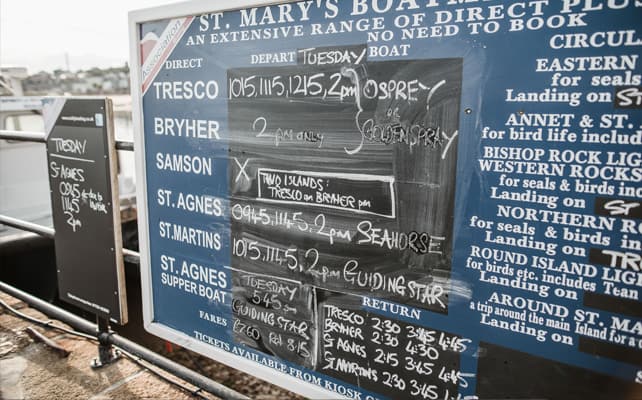 Association
ST. MARY'S BOATM
AN EXTENSIVE RANGE OF DIRECT PLU
NO NEED TO BOOK
DIRECT DEPART TUESDAY BOAT
TRESCO 1015, 1115, 1215, 2pm OSPREY
or
BRYHER 2pm only GOLDENSPRAY
SAMSON X
TWO ISLANDS:
TRESCO and BRYHER pm
ST. AGNES 0945, 1145, 2pm SEAHORSE
ST. MARTINS 1015, 1145, 2pm GUIDING STAR
ST. AGNES
SUPPER BOAT
TUESDAY
5.45pm
GUIDING STAR
Ret 8.15
FARES
RETURN
TRESCO 2:30 3:45 4:45
BRYHER 2:30 4:30
ST AGNES 2:15 3:45 4:45
ST MARTINS 2:30 3:45
TICKETS AVAILABLE FROM KIOSK O
CIRCUL
EASTERN
for seals
Landing on ST
ANNET & ST.
for bird life includ
BISHOP ROCK LIG
WESTERN ROCKS
for seals & birds in
Landing on ST
NORTHERN RO
for seals & birds in
Landing on TR
ROUND ISLAND LIG
for birds etc. includes Tean
Landing on
AROUND ST. MA
a trip around the main Island for a
Landing on
TUESDAY
ST AGNES
0945
1145
2pm